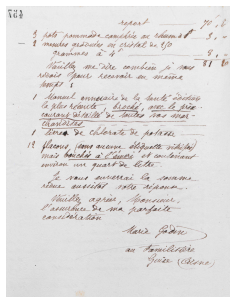 report 70,"
3 pots pommade camphrée au rhum 3,"
2 
grammes à 4f 8,"
81 
Veuillez me dire combien je vous
devrais pour recevoir en même
temps :
1 Manuel annuaire de la Santé édition
la plus récente, broché, avec le prix
courant détaillé de toutes vos mar-
chandises
1 de chlorate de potasse
12 flacons, (sans aucune étiquette)
mais bouchés à l'émeri et contenant
environ un quart de litre.
Je vous enverrai la somme
aussitôt votre réponse.
Veuillez agréer, Monsieur,
l'assurance de ma parfaite
considération
Marie Godin
au Familistère
Guise (Aisne)